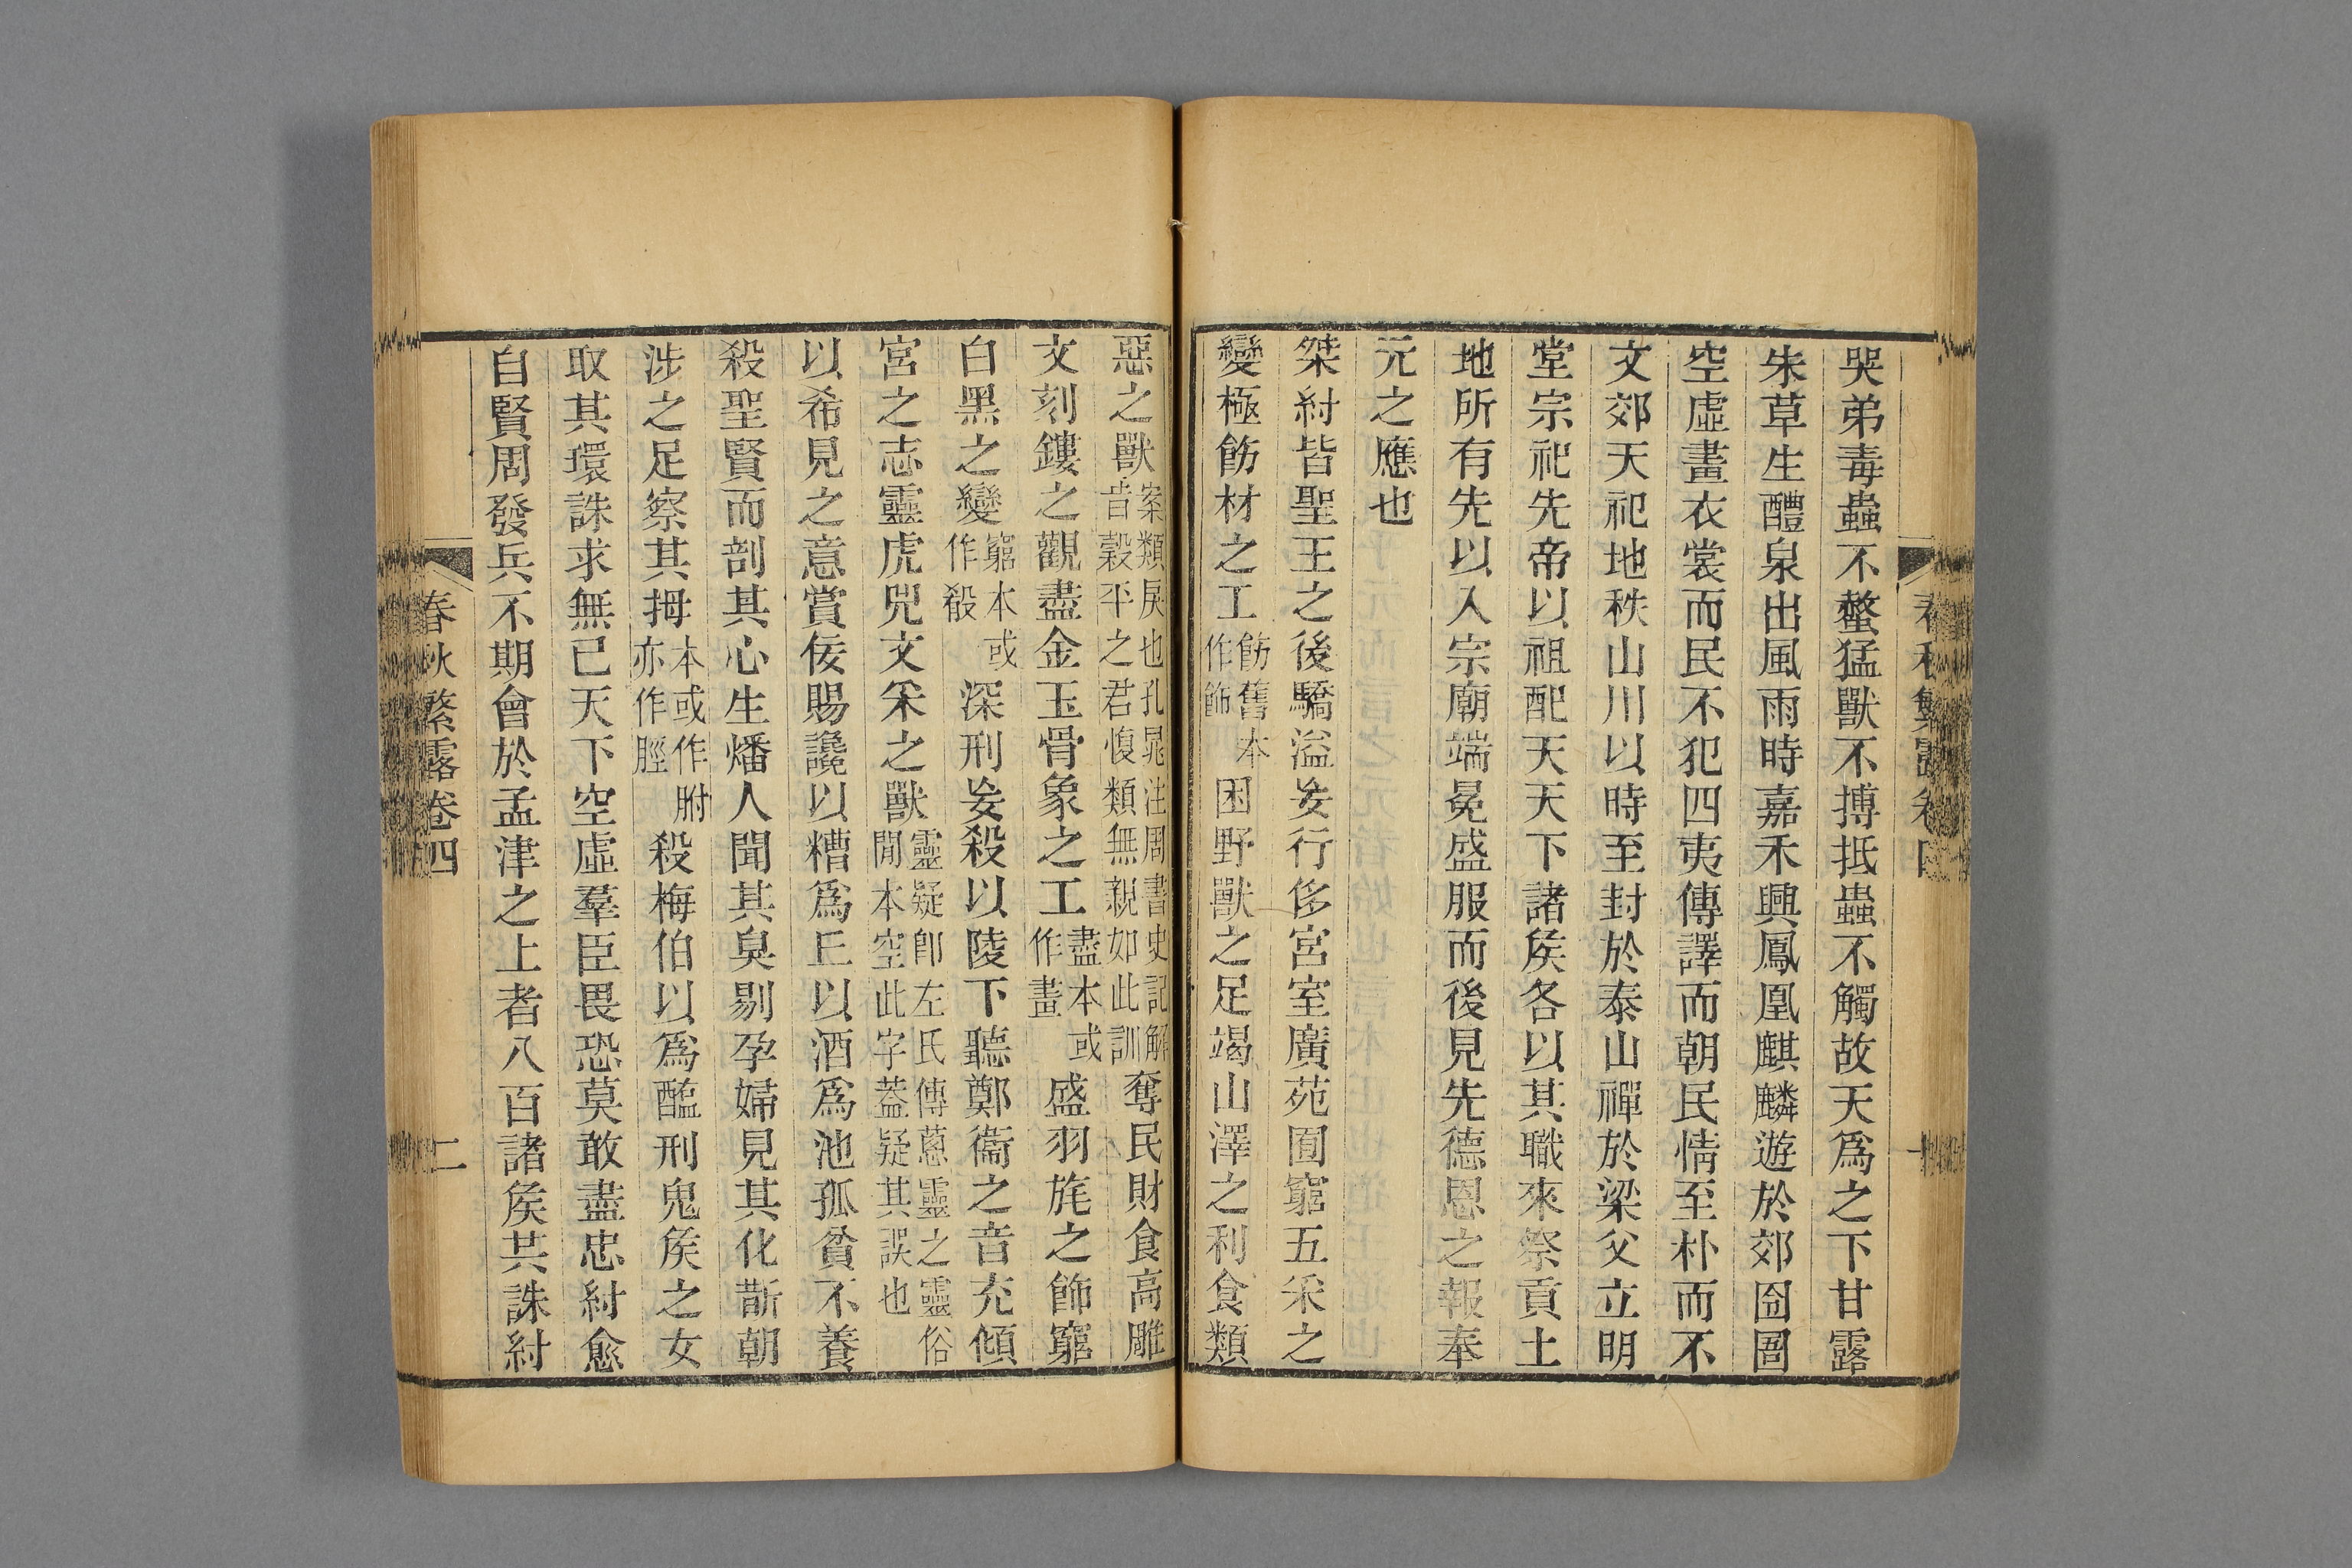 哭弟毒蟲不螫猛獸不搏抵蟲不觸故天爲之下甘露
朱草生醴泉出風雨時嘉禾興鳳凰麒麟遊於郊囹圄
空虛畫衣裳而民不犯四夷傳譯而朝民情至朴而不
文郊天祀地秩山川以時至封於泰山禪於梁父立明
堂宗祀先帝以祖配天天下諸矦各以其職來祭貢土
地所有先以入宗廟端冕盛服而後見先德恩之報奉
元之應也
桀紂皆聖王之後驕溢妄行侈宮室廣苑囿窮五采之
變極飭材之工飭舊本作飾困野獸之足竭山澤之利食類
惡之獸案類戾也孔晁注周書史記解昔穀平之君愎類無親如此訓奪民財食高雕
文刻鏤之觀盡金玉骨象之工盡本或作畫盛羽旄之飾窮
白黑之變窮本或作殺深刑妄殺以陵下聽鄭衞之音充傾
宮之志靈虎兕文采之獸靈疑卽左氏傳蔥靈之靈俗閒本空此字蓋疑其誤也
以希見之意賞佞賜讒以糟爲丘以酒爲池孤貧不養
殺聖賢而剖其心生燔人聞其臭剔孕婦見其化斮朝
涉之足察其拇本或作胕亦作脛殺梅伯以爲醢刑鬼矦之女
取其環誅求無已天下空虛羣臣畏恐莫敢盡忠紂愈
自賢周發兵不期會於孟津之上者八百諸矦共誅紂
春秋繁露卷四
二